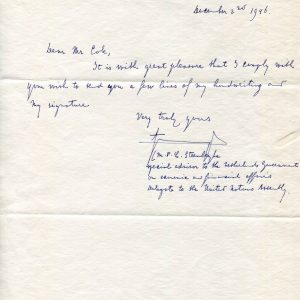 December 2nd 1946.
Dear Mr Cok,
It is with great pleasure that I comply with
you wish to send you a few lines of my handwriting and
my signature
Very truly yours
(M. P. L. Steenberghe
special advisor to the Netherlands Government
on economic and financial affairs
delegate to the United Nations Assembly.